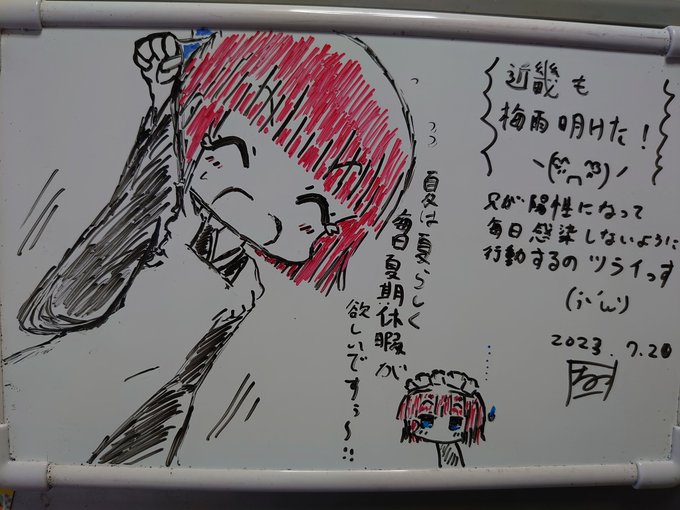 近畿も
梅雨明けた！
ヽ( )ノ
兄が陽性になって
毎日感染しないように
行動するのツライっす
2023. 7.20
夏は夏らしく
毎日夏期休暇が
欲しいですぅ〜!!